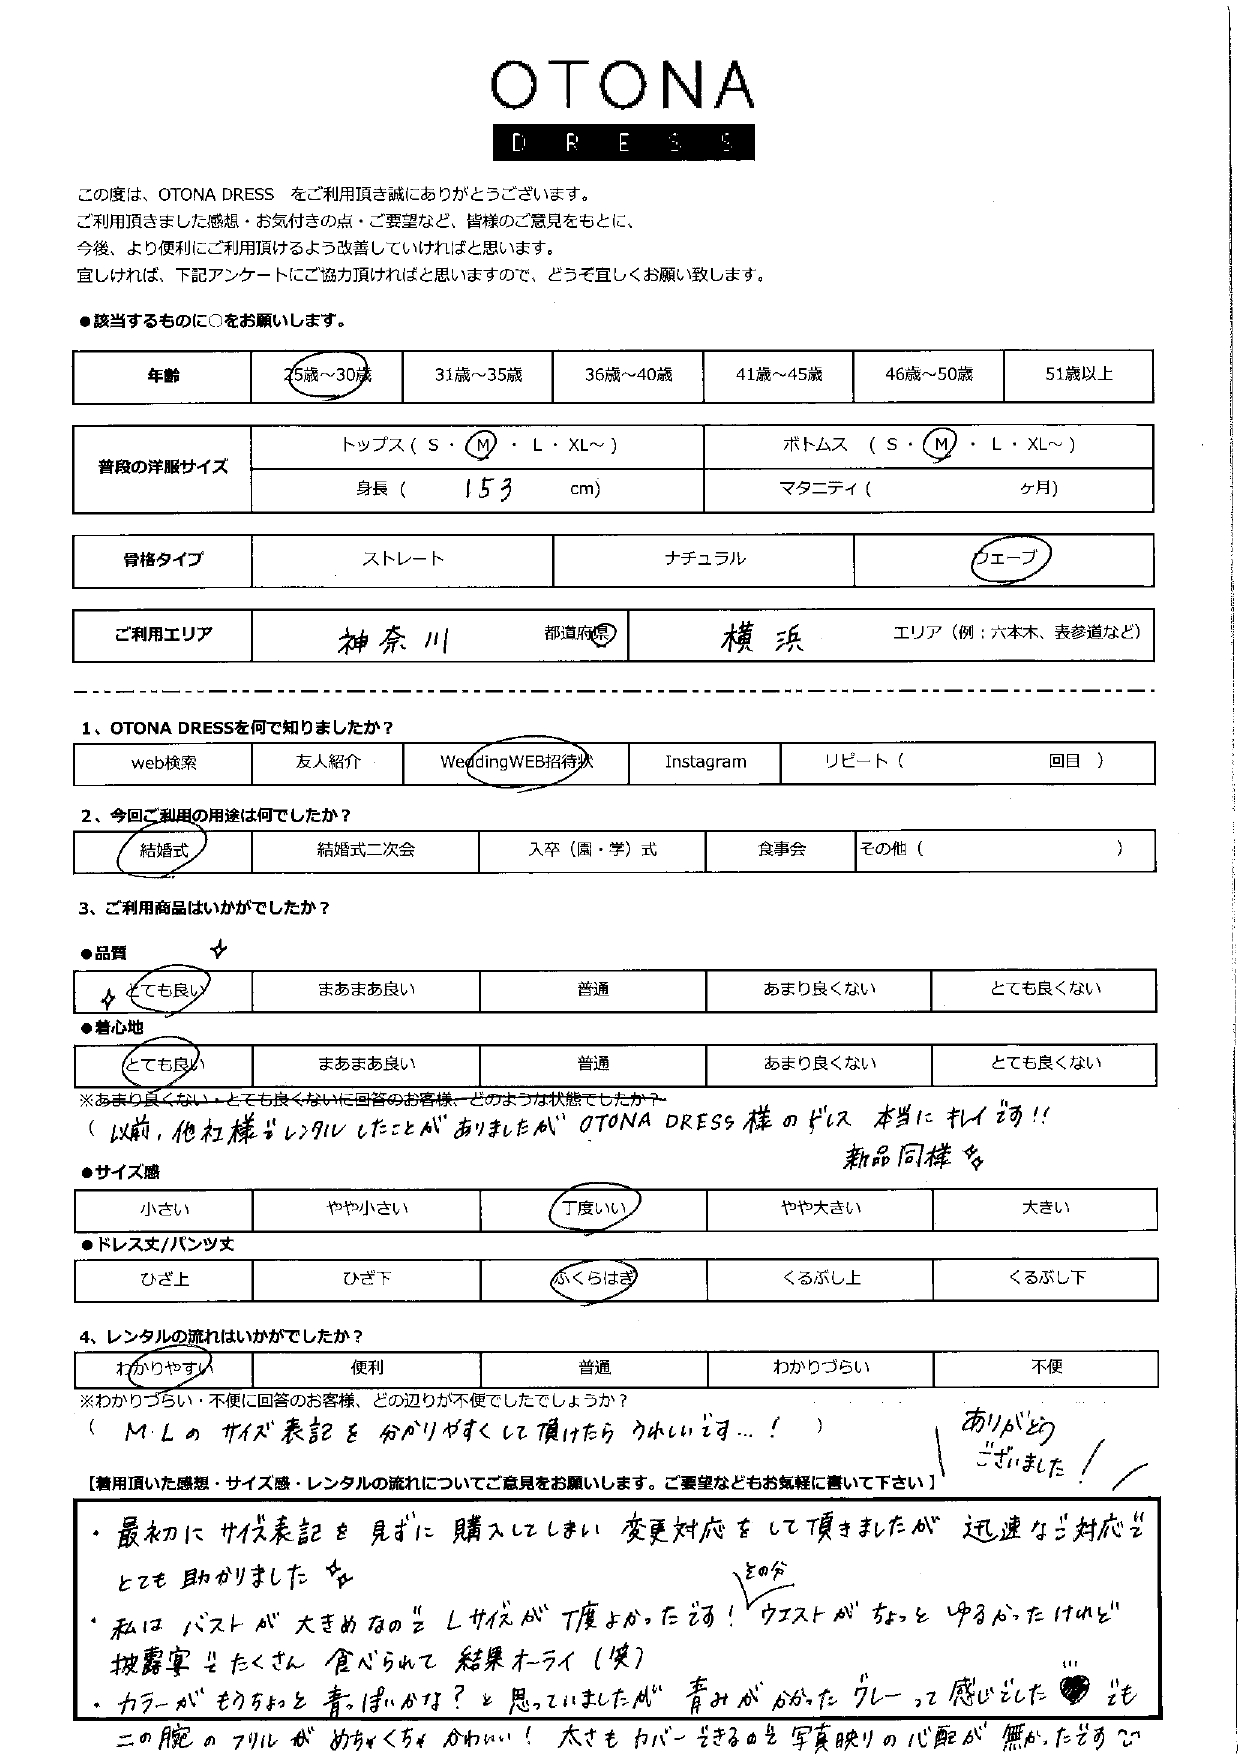 OTONA
DRESS
この度は、OTONA DRESS をご利用頂き誠にありがとうございます。
ご利用頂きました感想・お気付きの点・ご要望など、皆様のご意見をもとに、
今後、より便利にご利用頂けるよう改善していければと思います。
宜しければ、下記アンケートにご協力頂ければと思いますので、どうぞ宜しくお願い致します。
●該当するものに○をお願いします。
年齢 25歳～30歳 31歳～35歳 36歳～40歳 41歳～45歳 46歳～50歳 51歳以上
普段の洋服サイズ トップス ( S ・ M ・ L ・ XL～ ) ボトムス ( S ・ M ・ L ・ XL～ )
身長 ( 153 cm) マタニティ ( ヶ月)
骨格タイプ ストレート ナチュラル ウェーブ
ご利用エリア 神奈川 都道府県 横浜 エリア（例：六本木、表参道など）
1、OTONA DRESSを何で知りましたか？
web検索 友人紹介 WeddingWEB招待状 Instagram リピート ( 回目 )
2、今回ご利用の用途は何でしたか？
結婚式 結婚式二次会 入卒（園・学）式 食事会 その他 ( )
3、ご利用商品はいかがでしたか？
●品質
とても良い まあまあ良い 普通 あまり良くない とても良くない
●着心地
とても良い まあまあ良い 普通 あまり良くない とても良くない
※あまり良くない・とても良くないに回答のお客様、どのような状態でしたか？
( 以前、他社様でレンタルしたことがありましたが OTONA DRESS様のドレス 本当にキレイです!!
新品同様
●サイズ感
小さい やや小さい 丁度いい やや大きい 大きい
●ドレス丈/パンツ丈
ひざ上 ひざ下 ふくらはぎ くるぶし上 くるぶし下
4、レンタルの流れはいかがでしたか？
わかりやすい 便利 普通 わかりづらい 不便
※わかりづらい・不便に回答のお客様、どの辺りが不便でしたでしょうか？
( M・Lの サイズ表記を 分かりやすくして頂けたら うれしいです…! )
ありがとう
ございました!
【着用頂いた感想・サイズ感・レンタルの流れについてご意見をお願いします。ご要望などもお気軽に書いて下さい】
・最初に サイズ表記を 見ずに 購入してしまい 変更対応をして頂きましたが 迅速なご対応で
とても 助かりました
その分
・私は バストが 大きめなので Lサイズが 丁度よかったです! ウエストが ちょっと ゆるかったけれど
披露宴で たくさん 食べられて 結果オーライ (笑)
・カラーが もうちょっと 青っぽいかな? と 思っていましたが 青みが かかった グレーって 感じでした♥ でも
この腕の フリルが めちゃくちゃ かわいい! 太さも カバーできるので 写真映りの 心配が 無かったです